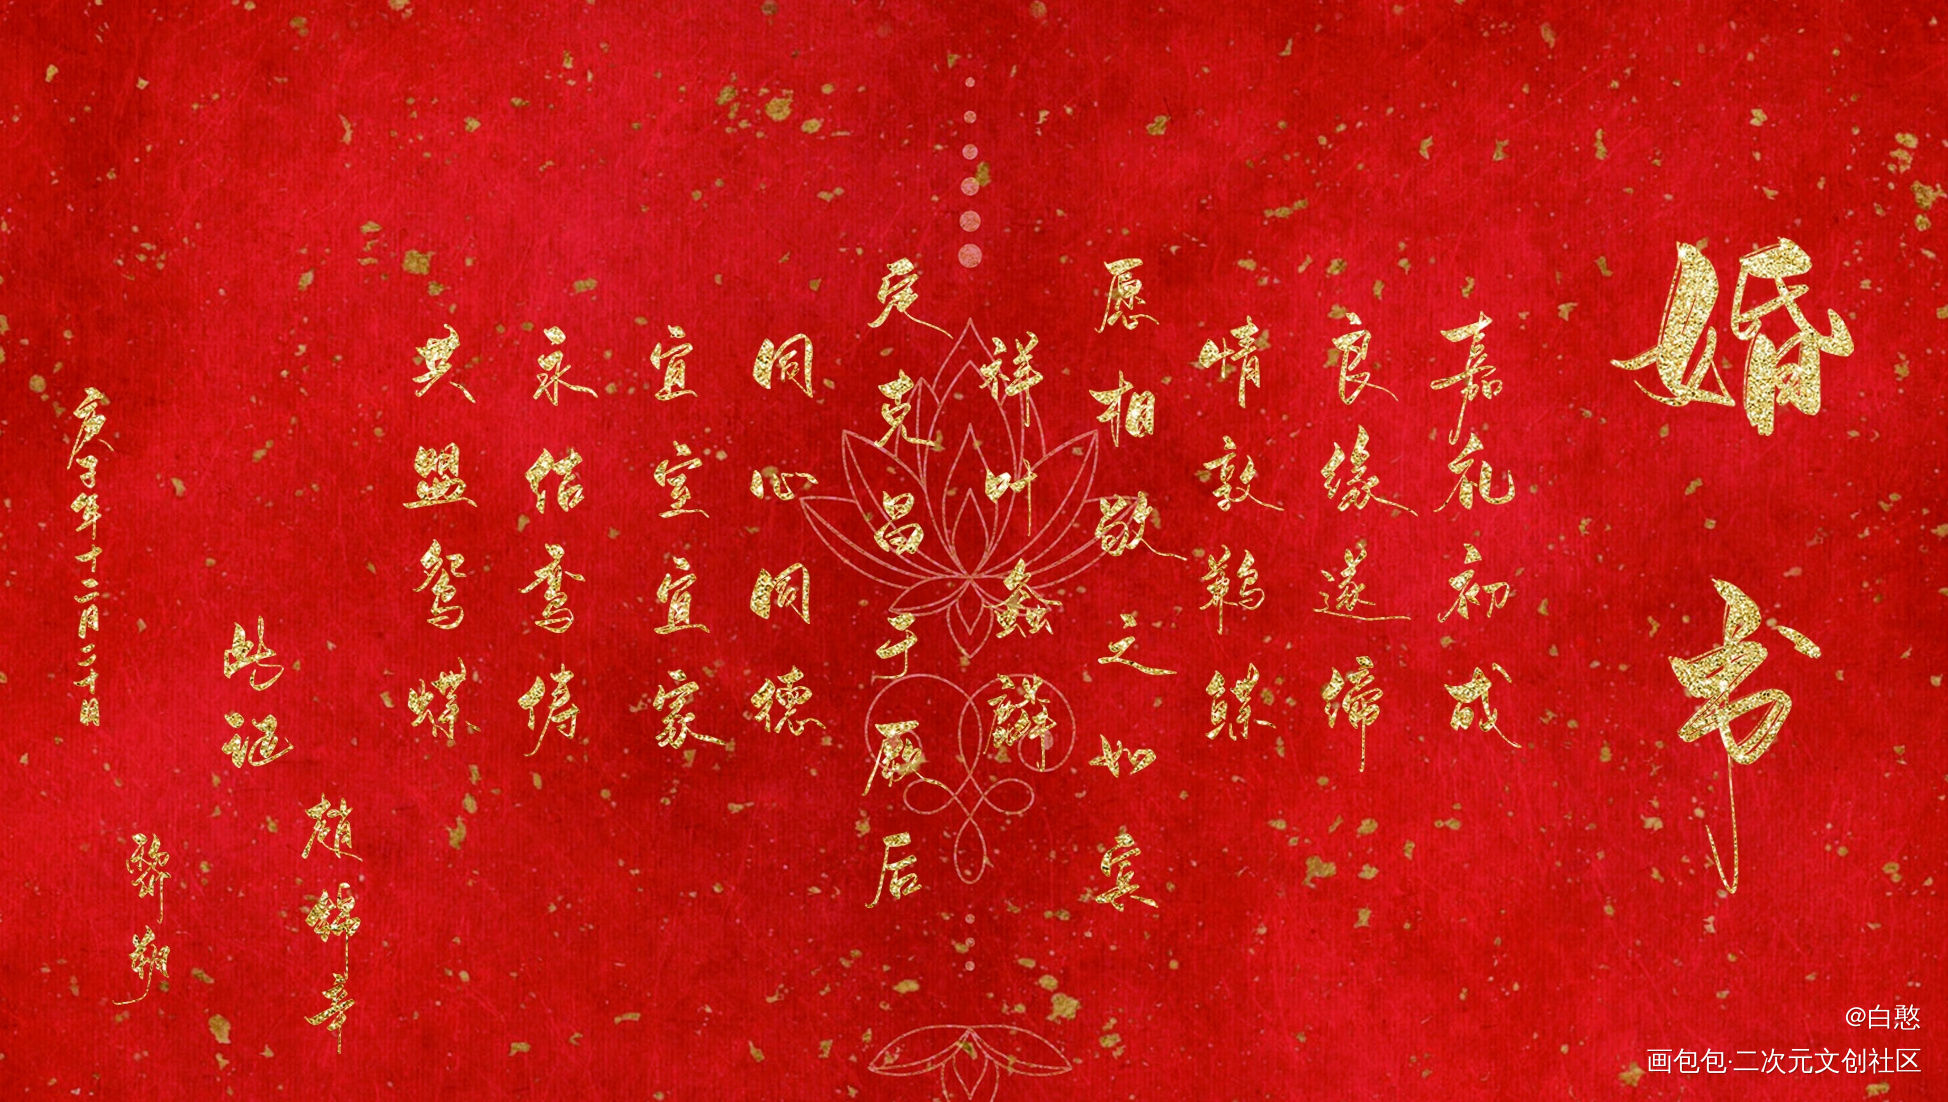 婚书
嘉礼初成
良缘遂缔
情敦鹣鲽
愿相敬之如宾
祥叶螽麟
定克昌于厥后
同心同德
宜室宜家
永结鸾俦
共盟鸳蝶
此证
赵锦辛
黎朔
庚子年十二月二十日
@白憨
画包包·二次元文创社区